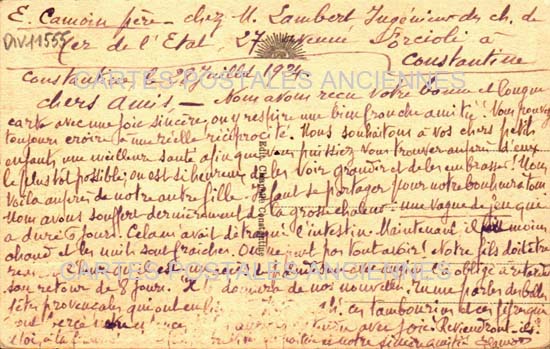 E. Camoin père - chez M. Lambert Ingénieur des ch. de
DIV.11555
fer de l'Etat, 27 avenue Forcioli à
Constantine
Constantine le 28 Juillet 1921
CARTES POSTALES ANCIENNES
Chers amis - Nous avons reçu votre bonne et longue
carte avec une joie sincère, on y respire une bien franche amitié! Vous pouvez
toujours croire à une réelle réciprocité. Nous souhaitons à vos chers petits
enfants une meilleure santé afin que vous puissiez vous trouver auprès d'eux
le plus tôt possible; on est si heureux de les voir grandir et de les embrasser! Nous
voila auprès de notre autre fille. Il faut se partager pour notre bonheur à tous
Nous avons souffert dernièrement de la grosse chaleur: une vague de feu qui
a duré 6 jours. Cela m'avait détraqué l'intestin. Maintenant il fait moins
chaud et les nuits sont fraîches. On ne peut pas tout avoir! Notre fils doit être
CARTES POSTALES ANCIENNES
son retour de 8 jours. donnera de nos nouvelles. Tu me parles des belles
fêtes provençales qui ont eu
ces tambourins et ces fifres qui
avec joie. Reviendront-ils
notre sincère amitié
Edit. Chapuis